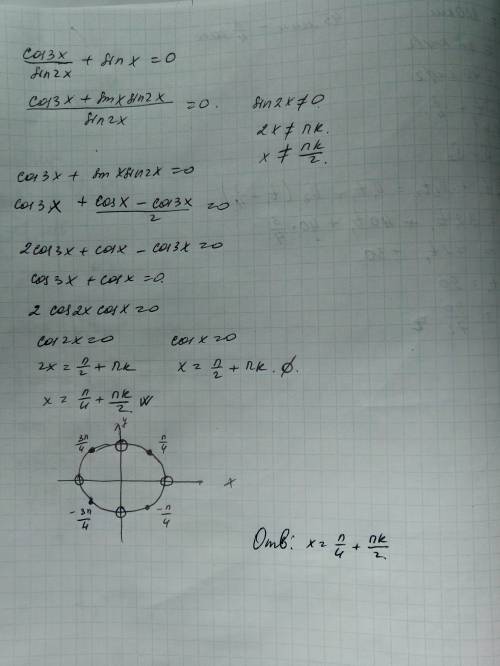 cos3x/sin2x + sinx = 0
(cos3x + sinx sin2x)/sin2x = 0. sin2x ≠ 0.
2x ≠ πk.
x ≠ πk/2.
cos3x + sinx sin2x = 0
cos3x + (cosx - cos3x)/2 = 0
2cos3x + cosx - cos3x = 0
cos3x + cosx = 0.
2 cos2x cosx = 0
cos2x = 0 cosx = 0
2x = π/2 + πk x = π/2 + πk. ∅.
x = π/4 + πk/2
y
3π/4 π/4
x
-3π/4 -π/4
Отв: x = π/4 + πk/2